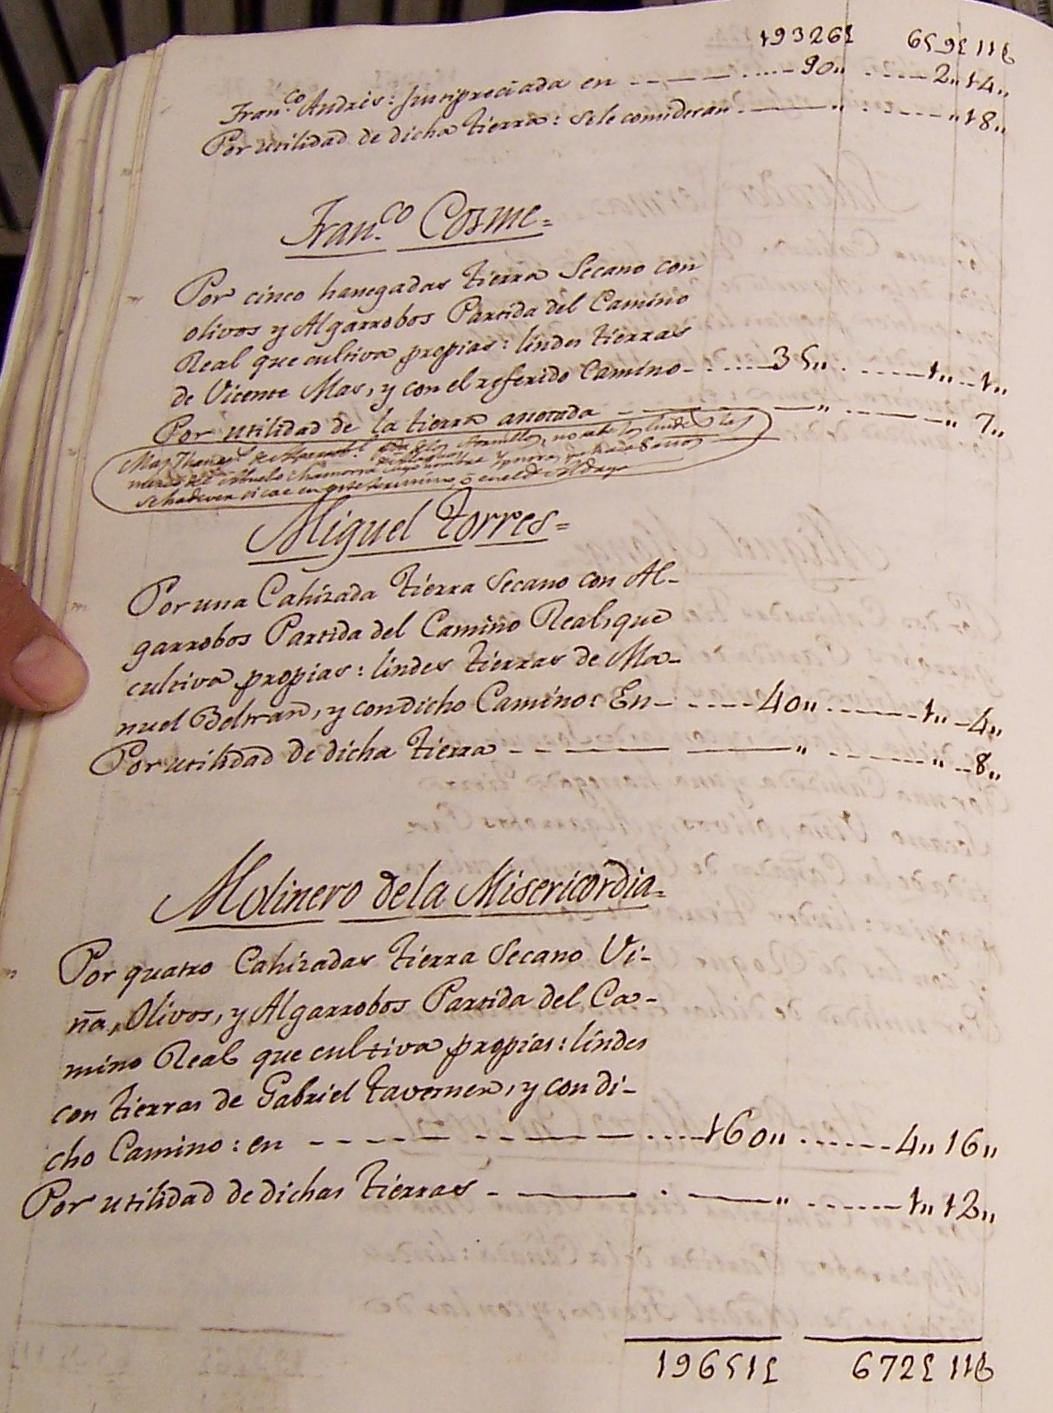 19326₤ 659₤11₰
Fran.co Andrés: Justipreciada en 90,, 2,,14,,
Por utilidad de dicha tierra: se le consideran ,, ,,18,,
Fran.co Cosme=
Por cinco hanegadas tierra Secano con
olivos y Algarrobos Partida del Camino
Real que cultiva propias: lindes tierras
de Vicente Mas, y con el referido Camino 35,, 1,,1,,
Por utilidad de la tierra anotada ,, ,,7,,
Miguel Torres=
Por una Cahizada tierra Secano con Al-
garrobos Partida del Camino Real, que
cultiva propias: lindes tierras de Ma-
nuel Beltran, y con dicho Camino: En 40,, 1,,4,,
Por utilidad de dicha tierra ,, ,,8,,
Molinero de la Misericordia=
Por quatro Cahizadas tierra Secano Vi-
ña, Olivos, y Algarrobos Partida del Ca-
mino Real que cultiva propias: lindes
con tierras de Gabriel Taverner, y con di-
cho Camino: en 160,, 4,,16,,
Por utilidad de dichas tierras ,, 1,,12,,
19651₤ 672₤11₰